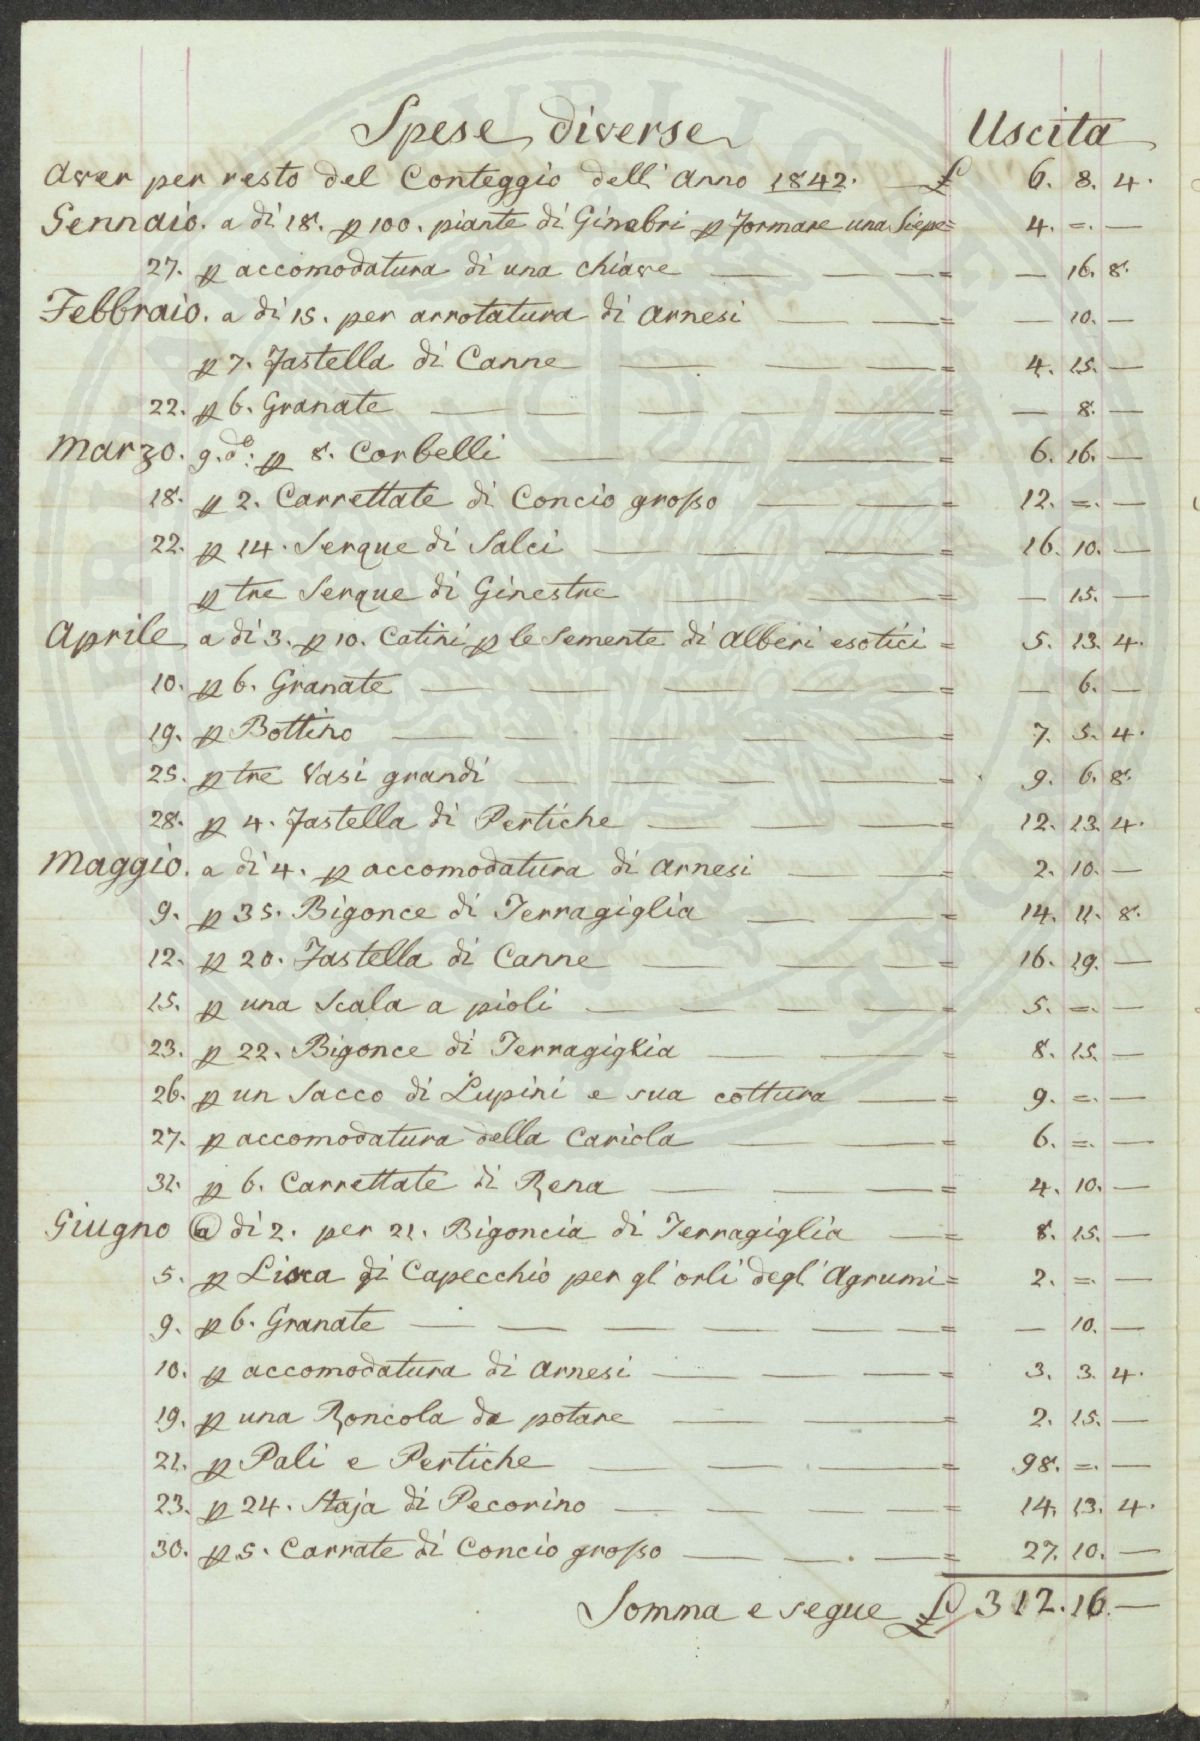 Spese diverse Uscita
Aver per resto del Conteggio dell' Anno 1842. — £ 6. 8. 4.
Gennaio. a di 18. p 100. piante di Ginebri p formare una Siepe = 4. =. —
27. p accomodatura di una chiave — — — = — 16. 8.
Febbraio. a di 15. per arrotatura di Arnesi — — = — 10. —
p 7. Fastella di Canne — — — = 4. 15. —
22. p 6. Granate — — — — — = — 8. —
Marzo. 9. do: p 8. Corbelli — — — = 6. 16. —
18. p 2. Carrettate di Concio grosso — — = 12. =. —
22. p 14. Serque di Salci — — — = 16. 10. —
p tre Serque di Ginestre — — — = — 15. —
Aprile a di 3. p 10. Catini p le Semente di Alberi esotici = 5. 13. 4.
10. p 6. Granate — — — — — = — 6. —
19. p Bottino — — — — — = 7. 5. 4.
25. p tre Vasi grandi — — — — = 9. 6. 8.
28. p 4. Fastella di Pertiche — — — = 12. 13. 4.
Maggio. a di 4. p accomodatura di Arnesi — — = 2. 10. —
9. p 35. Bigonce di Terragiglia — — = 14. 11. 8.
12. p 20. Fastella di Canne — — — = 16. 19. —
15. p una Scala a pioli — — — — = 5. =. —
23. p 22. Bigonce di Terragiglia — — = 8. 15. —
26. p un Sacco di Lupini e sua cottura — = 9. =. —
27. p accomodatura della Cariola — — = 6. =. —
31. p 6. Carrettate di Rena — — — = 4. 10. —
Giugno a di 2. per 21. Bigoncia di Terragiglia — = 8. 15. —
5. p Lisca di Capecchio per gl' orli degl' Agrumi = 2. =. —
9. p 6. Granate — — — — — = — 10. —
10. p accomodatura di Arnesi — — — = 3. 3. 4.
19. p una Roncola da potare — — — = 2. 15. —
21. p Pali e Pertiche — — — — = 98. =. —
23. p 24. Staja di Pecorino — — — — = 14. 13. 4.
30. p 5. Carrate di Concio grosso — — — = 27. 10. —
Somma e segue £ 312. 16. —